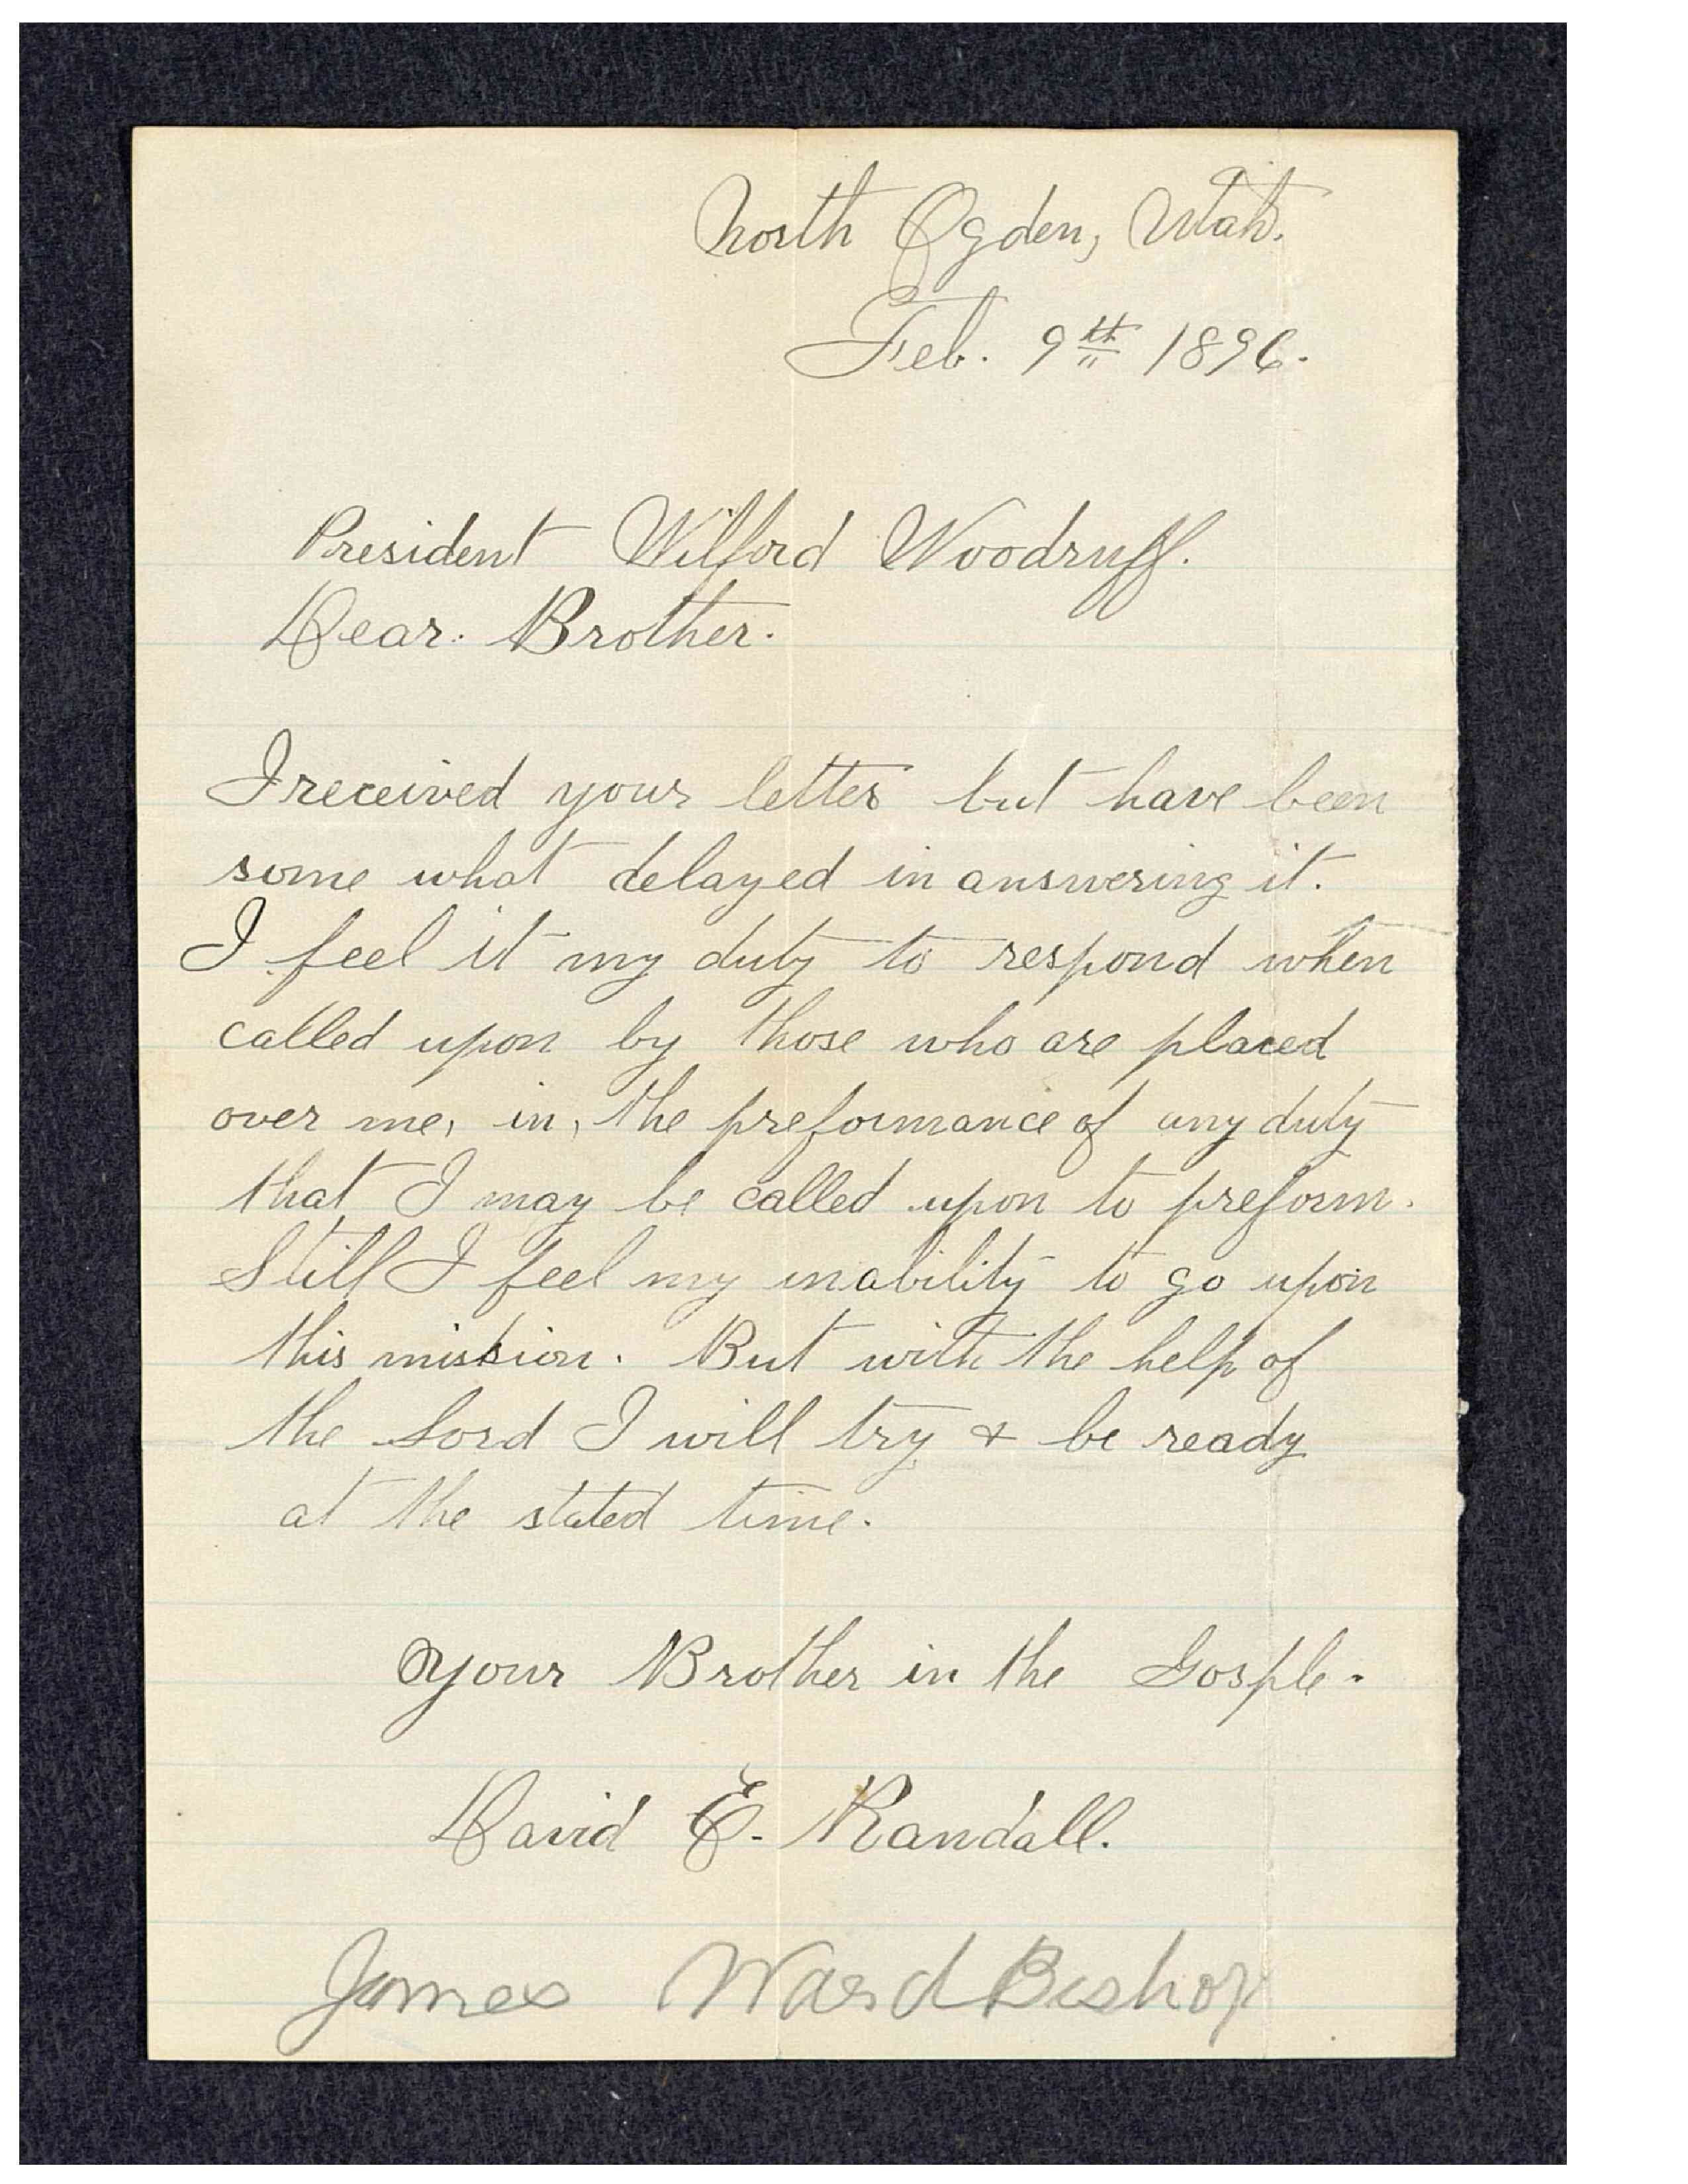 North Ogden, Utah.
Feb. 9th 1896.
President Wilford Woodruff.
Dear. Brother.
I received your letter but have been
some what delayed in answering it.
I feel it my duty to respond when
called upon by those who are placed
over me, in, the preformance of any duty
that I may be called upon to preform.
Still I feel my inability to go upon
this mission. But with the help of
the Lord I will try & be ready
at the stated time.
Your Brother in the Gosple.
David E. Randall.
James Ward Bishop